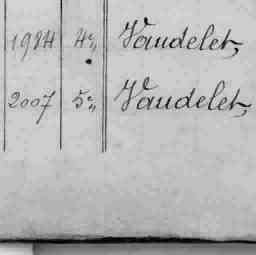 1984 4°, Vaudelet,
2007 5°, Vaudelet,